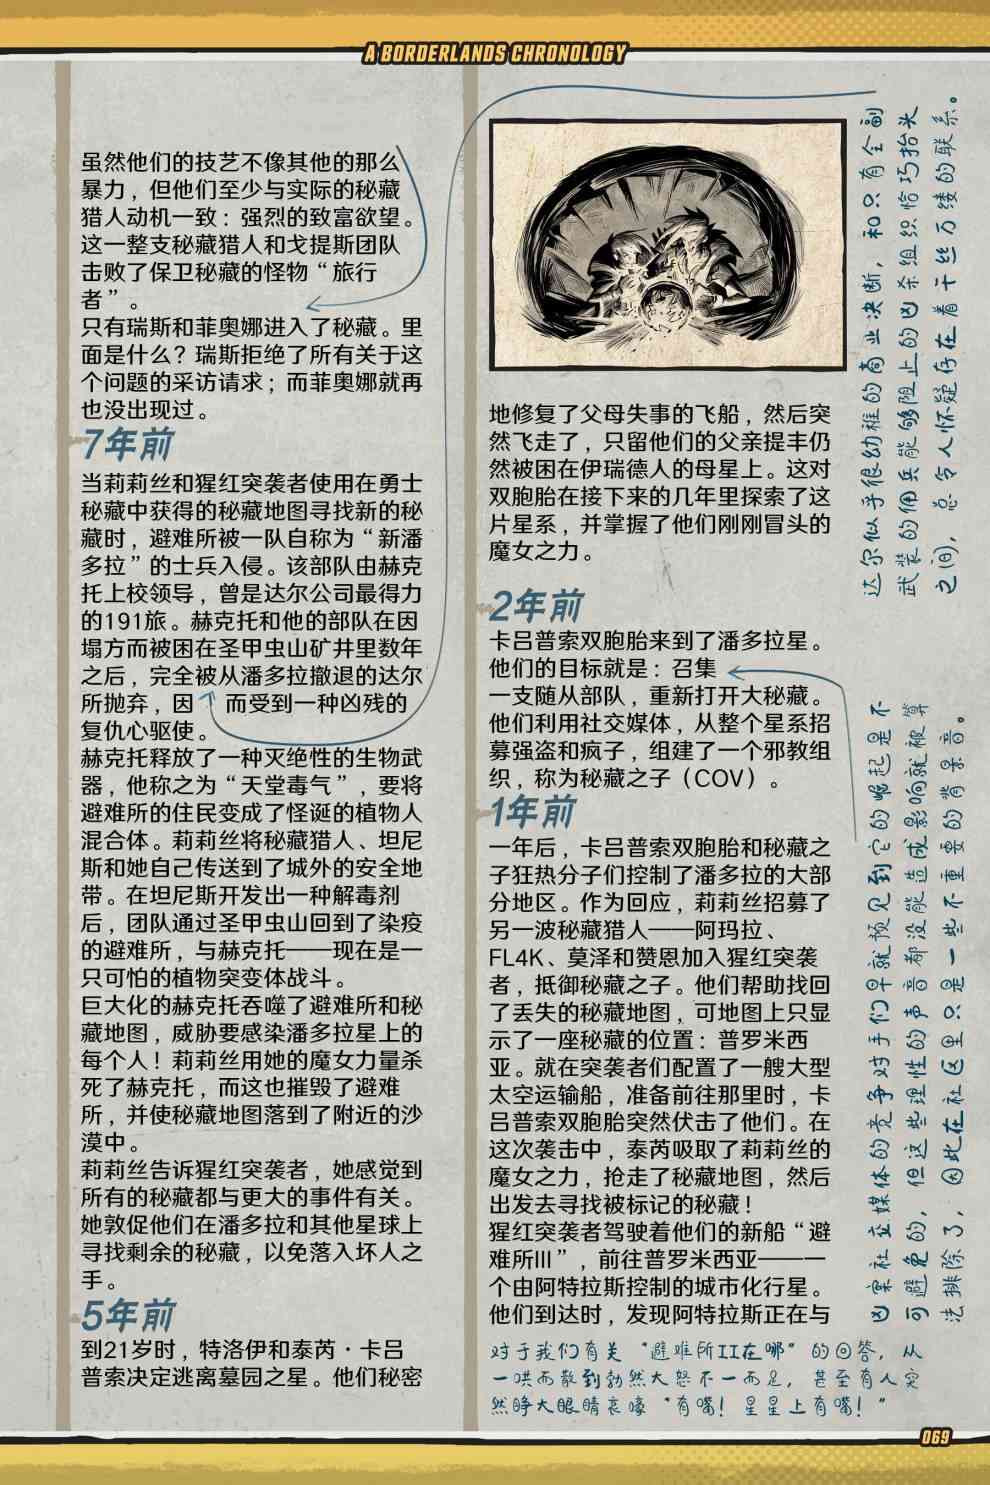 A BORDERLANDS CHRONOLOGY
虽然他们的技艺不像其他的那么
暴力，但他们至少与实际的秘藏
猎人动机一致：强烈的致富欲望。
这一整支秘藏猎人和戈提斯团队
击败了保卫秘藏的怪物“旅行
者”。
只有瑞斯和菲奥娜进入了秘藏。里
面是什么？瑞斯拒绝了所有关于这
个问题的采访请求；而菲奥娜就再
也没出现过。
7年前
当莉莉丝和猩红突袭者使用在勇士
秘藏中获得的秘藏地图寻找新的秘
藏时，避难所被一队自称为“新潘
多拉”的士兵入侵。该部队由赫克
托上校领导，曾是达尔公司最得力
的191旅。赫克托和他的部队在因
塌方而被困在圣甲虫山矿井里数年
之后，完全被从潘多拉撤退的达尔
所抛弃，因 而受到一种凶残的
复仇心驱使。
赫克托释放了一种灭绝性的生物武
器，他称之为“天堂毒气”，要将
避难所的住民变成了怪诞的植物人
混合体。莉莉丝将秘藏猎人、坦尼
斯和她自己传送到了城外的安全地
带。在坦尼斯开发出一种解毒剂
后，团队通过圣甲虫山回到了染疫
的避难所，与赫克托——现在是一
只可怕的植物突变体战斗。
巨大化的赫克托吞噬了避难所和秘
藏地图，威胁要感染潘多拉星上的
每个人！莉莉丝用她的魔女力量杀
死了赫克托，而这也摧毁了避难
所，并使秘藏地图落到了附近的沙
漠中。
莉莉丝告诉猩红突袭者，她感觉到
所有的秘藏都与更大的事件有关。
她敦促他们在潘多拉和其他星球上
寻找剩余的秘藏，以免落入坏人之
手。
5年前
到21岁时，特洛伊和泰芮·卡吕
普索决定逃离墓园之星。他们秘密
地修复了父母失事的飞船，然后突
然飞走了，只留他们的父亲提丰仍
然被困在伊瑞德人的母星上。这对
双胞胎在接下来的几年里探索了这
片星系，并掌握了他们刚刚冒头的
魔女之力。
2年前
卡吕普索双胞胎来到了潘多拉星。
他们的目标就是：召集
一支随从部队，重新打开大秘藏。
他们利用社交媒体，从整个星系招
募强盗和疯子，组建了一个邪教组
织，称为秘藏之子（COV）。
1年前
一年后，卡吕普索双胞胎和秘藏之
子狂热分子们控制了潘多拉的大部
分地区。作为回应，莉莉丝招募了
另一波秘藏猎人——阿玛拉、
FL4K、莫泽和赞恩加入猩红突袭
者，抵御秘藏之子。他们帮助找回
了丢失的秘藏地图，可地图上只显
示了一座秘藏的位置：普罗米西
亚。就在突袭者们配置了一艘大型
太空运输船，准备前往那里时，卡
吕普索双胞胎突然伏击了他们。在
这次袭击中，泰芮吸取了莉莉丝的
魔女之力，抢走了秘藏地图，然后
出发去寻找被标记的秘藏！
猩红突袭者驾驶着他们的新船“避
难所III”，前往普罗米西亚——一
个由阿特拉斯控制的城市化行星。
他们到达时，发现阿特拉斯正在与
对于我们有关“避难所II在哪”的回答，从
一哄而散到勃然大怒不一而足，甚至有人突
然睁大眼睛哀嚎“有嘴！星星上有嘴！”
达尔似乎很幼稚的商业决断，和只有全副
武装的佣兵能够阻止的凶杀组织恰巧抬头
之间，总令人怀疑存在着千丝万缕的联系。
凶案社交媒体的竞争对手们早就预见到它的崛起是不
可避免的，但这些理性的声音都没能造成影响就被算
法排除了，因此在社区里只是一些不重要的背景音。
069